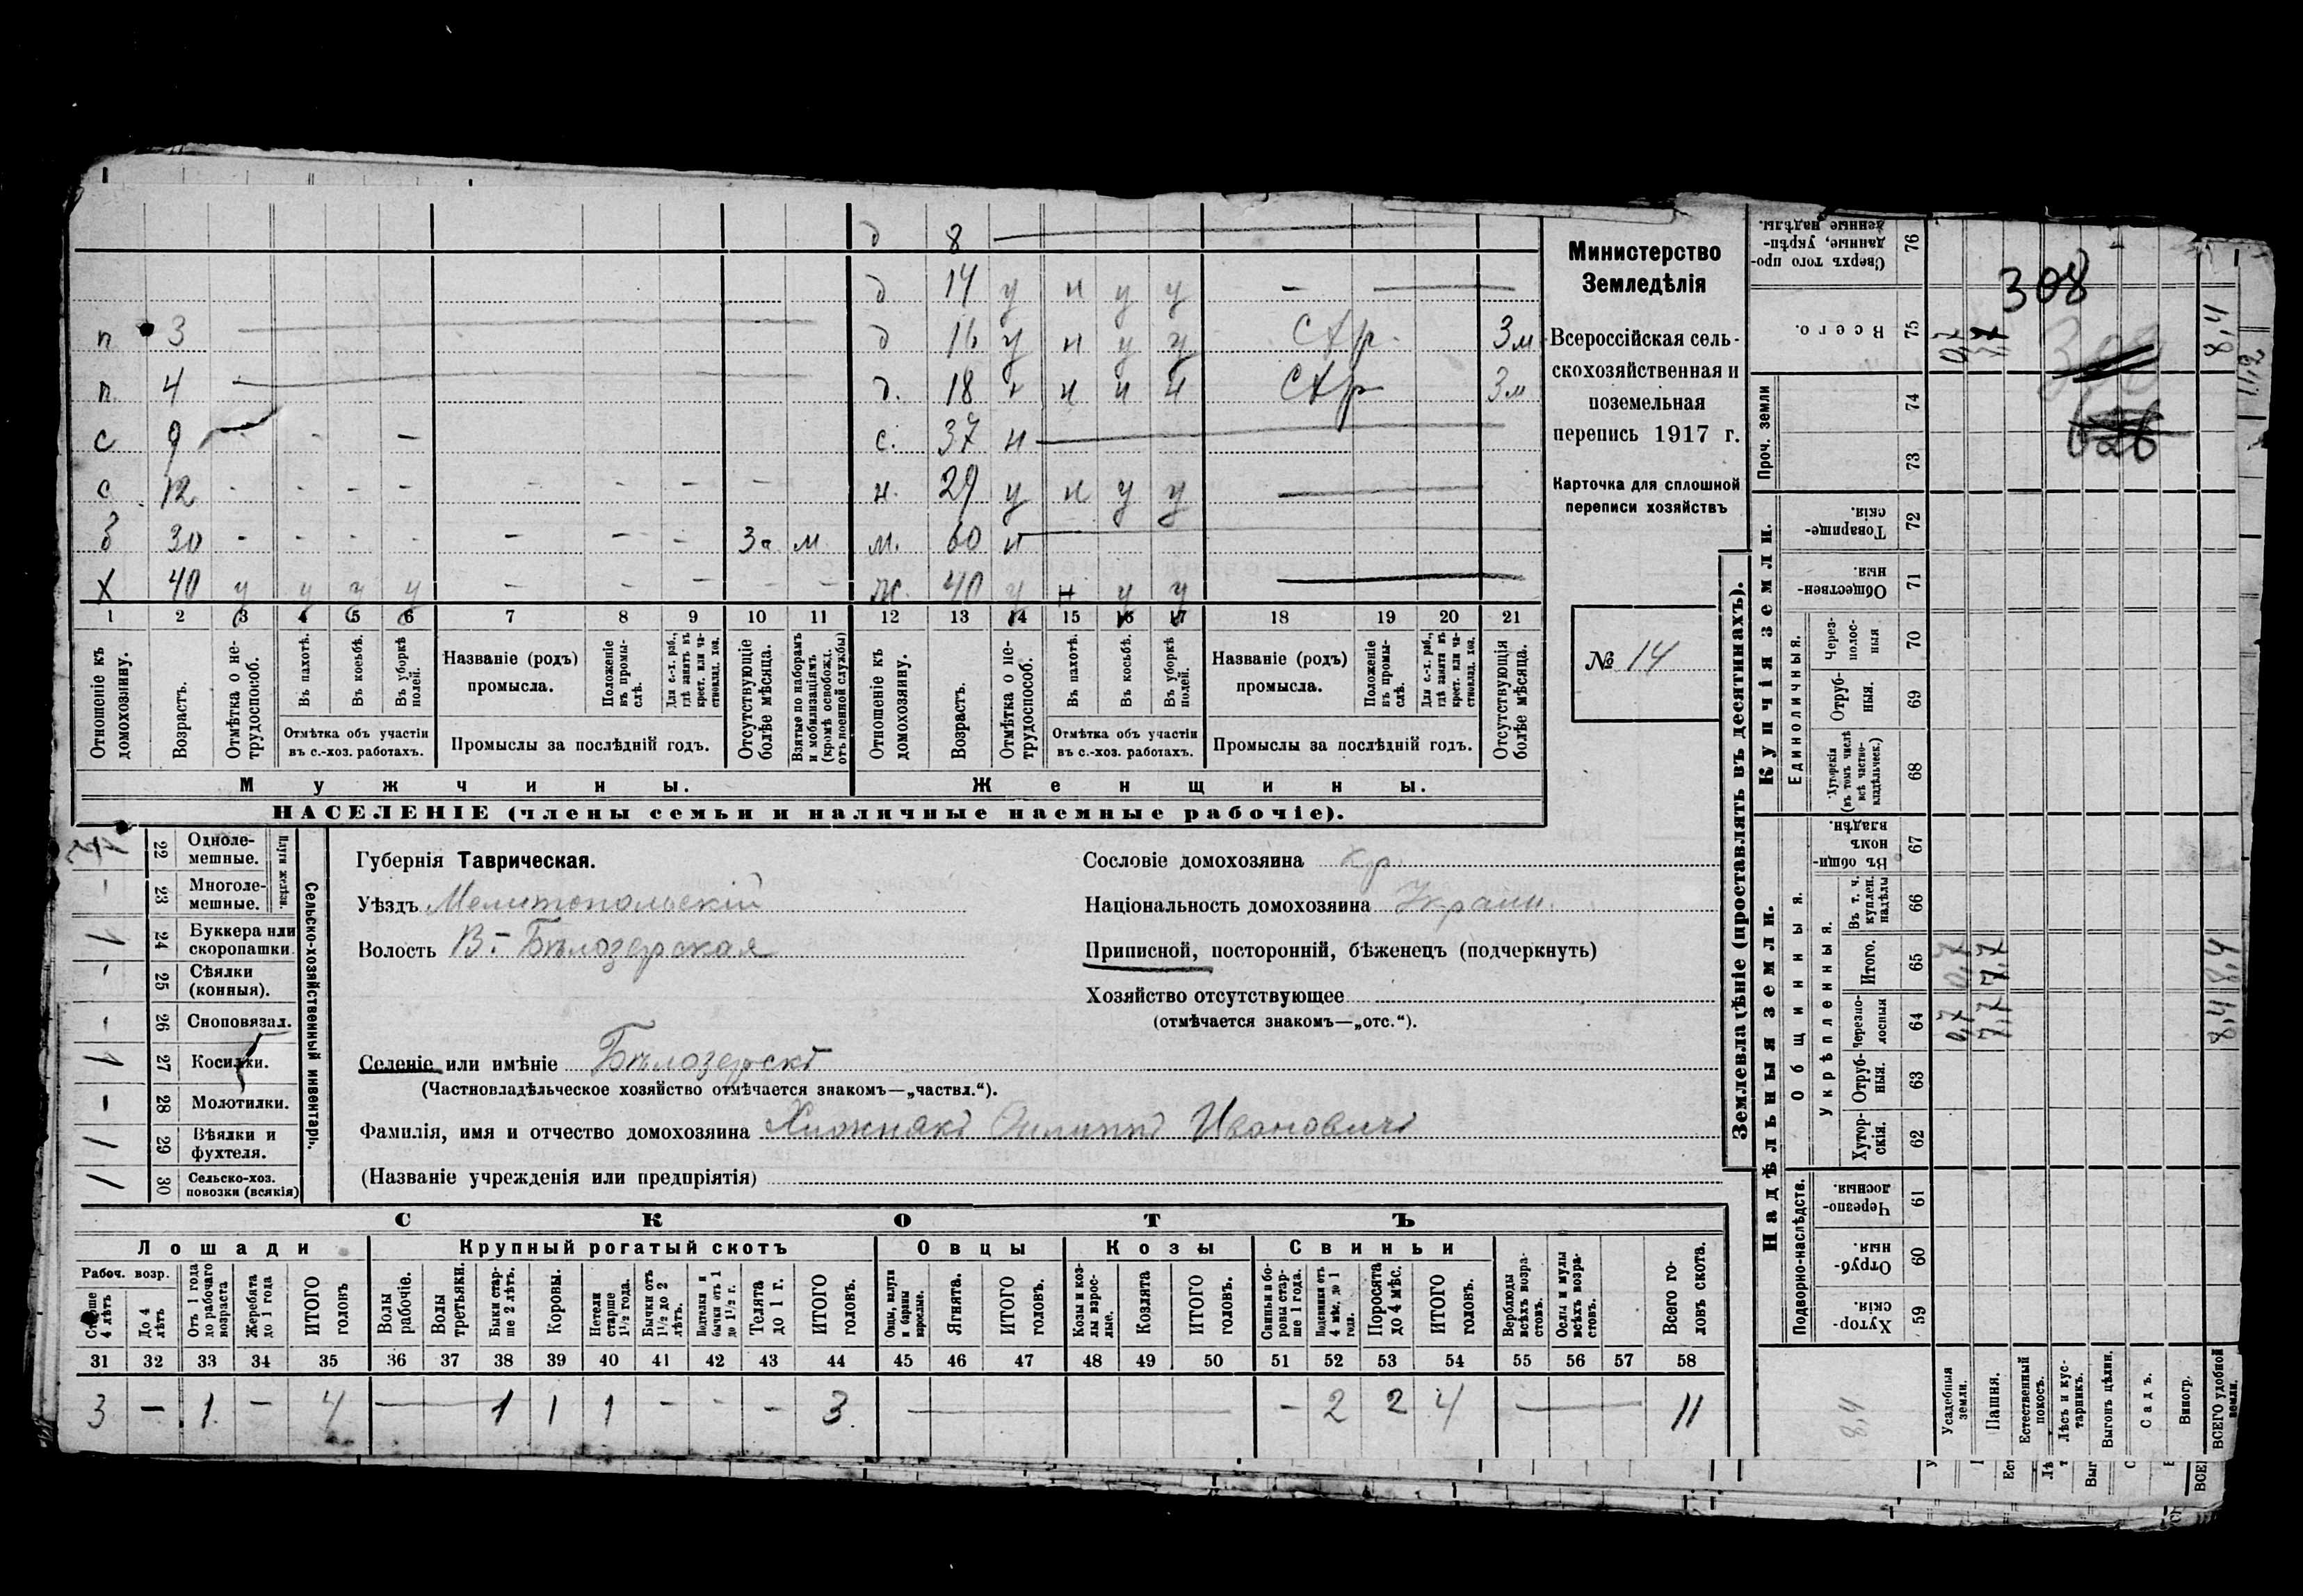 д 8
д 14 у н у у –
п 3 д 16 у н у у Стр. 3 м
п. 4 д. 18 н н н Стр 3 м
с 9 – – – с. 37 н
с 12 - - - - - - - - н. 29 у н у у
б 30 - - - - - - - За м м. 60 н
Х 40 у у у у - - - - - ж. 40 у н у у
1 2 3 4 5 6 7 8 9 10 11 12 13 14 15 16 17 18 19 20 21
Отношеніе къ домохозяину.
Возрастъ.
Отмѣтка о не-трудоспособ.
Въ пахотѣ.
Въ косьбѣ.
Въ уборкѣ полей.
Отмѣтка объ участіи
въ с.-хоз. работахъ.
Названіе (родъ)
промысла.
Положеніе въ промы-слѣ.
Для с.-х. раб., гдѣ занятъ въ крест. или ча-стновлад. хоз.
Промыслы за послѣдній годъ.
Отсутствующіе болѣе мѣсяца.
Взятые по наборамъ и мобилизаціямъ (кромѣ освобожд. отъ военной службы)
Отношеніе къ домохозяину.
Возрастъ.
Отмѣтка о не-трудоспособ.
Въ пахотѣ.
Въ косьбѣ.
Въ уборкѣ полей.
Отмѣтка объ участіи
въ с.-хоз. работахъ.
Названіе (родъ)
промысла.
Положеніе въ промы-слѣ.
Для с.-х. раб., гдѣ занята въ крест. или ча-стновлад. хоз.
Промыслы за послѣдній годъ.
Отсутствующія болѣе мѣсяца.
Мужчины. Женщины.
НАСЕЛЕНІЕ (члены семьи и наличные наемные рабочіе).
Министерство
Земледѣлія
Всероссійская сель-
скохозяйственная и
поземельная
перепись 1917 г.
Карточка для сплошной
переписи хозяйствъ
№ 14
Сельско-хозяйственный инвентарь.
Плуги желѣзн.
22 Одноле-
мешные.
– 23 Многоле-
мешные.
1 24 Буккера или
скоропашки.
- 25 Сѣялки
(конныя).
- 26 Сноповязал.
1 27 Косилки.
- 28 Молотилки.
1 29 Вѣялки и
фухтеля.
1 30 Сельско-хоз.
повозки (всякія)
Губернія Таврическая.
Уѣздъ Мелитопольскій
Волость В.-Бѣлозерская
Селеніе или имѣніе Бѣлозерскѣ
(Частновладѣльческое хозяйство отмѣчается знакомъ—„частвл.“).
Фамилія, имя и отчество домохозяина Хижнякъ Филиппъ Ивановичъ
(Названіе учрежденія или предпріятія)
Сословіе домохозяина кр.
Національность домохозяина Украин.
Приписной, посторонній, бѣженецъ (подчеркнуть)
Хозяйство отсутствующее
(отмѣчается знакомъ—„отс.“).
СКОТЪ
Лошади Крупный рогатый скотъ Овцы Козы Свиньи
Рабоч. возр.
Старше 4 лѣтъ
До 4 лѣтъ
Отъ 1 года до рабочаго возраста
Жеребята до 1 года
ИТОГО головъ
Волы рабочіе.
Волы третьяки.
Быки стар-ше 2 лѣтъ.
Коровы.
Нетели старше 1½ года.
Бычки отъ 1½ до 2 лѣтъ.
Подтелки и бычки отъ 1 до 1½ г.
Телята до 1 г.
ИТОГО головъ.
Овцы, валухи и бараны взрослые.
Ягнята.
ИТОГО головъ.
Козы и коз-лы взрос-лые.
Козлята
ИТОГО головъ.
Свиньи и бо-ровы стар-ше 1 года.
Подсвинки отъ 4 мѣс. до 1 года.
Поросята до 4 мѣс.
ИТОГО головъ.
Верблюды всѣхъ возра-стовъ.
Ослы и мулы всѣхъ возра-стовъ.
Всего го-ловъ скота.
31 32 33 34 35 36 37 38 39 40 41 42 43 44 45 46 47 48 49 50 51 52 53 54 55 56 57 58
3 – 1 – 4 – 1 1 1 - - - 3. – – 2 2 4 – 11
Землевладѣніе (проставлять въ десятинахъ).
Надѣльныя земли. Купчія земли. Проч. земли
Подворно-наслѣдств. Общинныя. Укрѣпленныя. Единоличныя.
76 Сверхъ того про-данные, укрѣп-денные надѣлы.
75 Всего. 0,7 7,7 8,4
74
73
72 Товарище-скія.
71 Обществен-ныя.
70 Через-полос-ныя
69 Отруб-ныя.
68 Хуторскія (въ томъ числѣ всѣ частно-владѣльческ.)
67 Въ общи-номъ владѣн.
66 Въ т. ч. куплен. надѣлы
65 Итого. 0,7 7,7 8,4
64 Черезпо-лосныя 0,7 7,7 8,4
63 Отруб-ныя.
62 Хутор-скія.
61 Черезпо-лосныя.
60 Отруб-ныя.
59 Хутор-скія.
8,4
Усадебныя земли.
Пашня.
Естественный покосъ.
Лѣсъ и кус-тарникъ.
Выгонъ цѣлин.
Садъ.
Виногр.
ВСЕГО удобной земли.
308
11,2